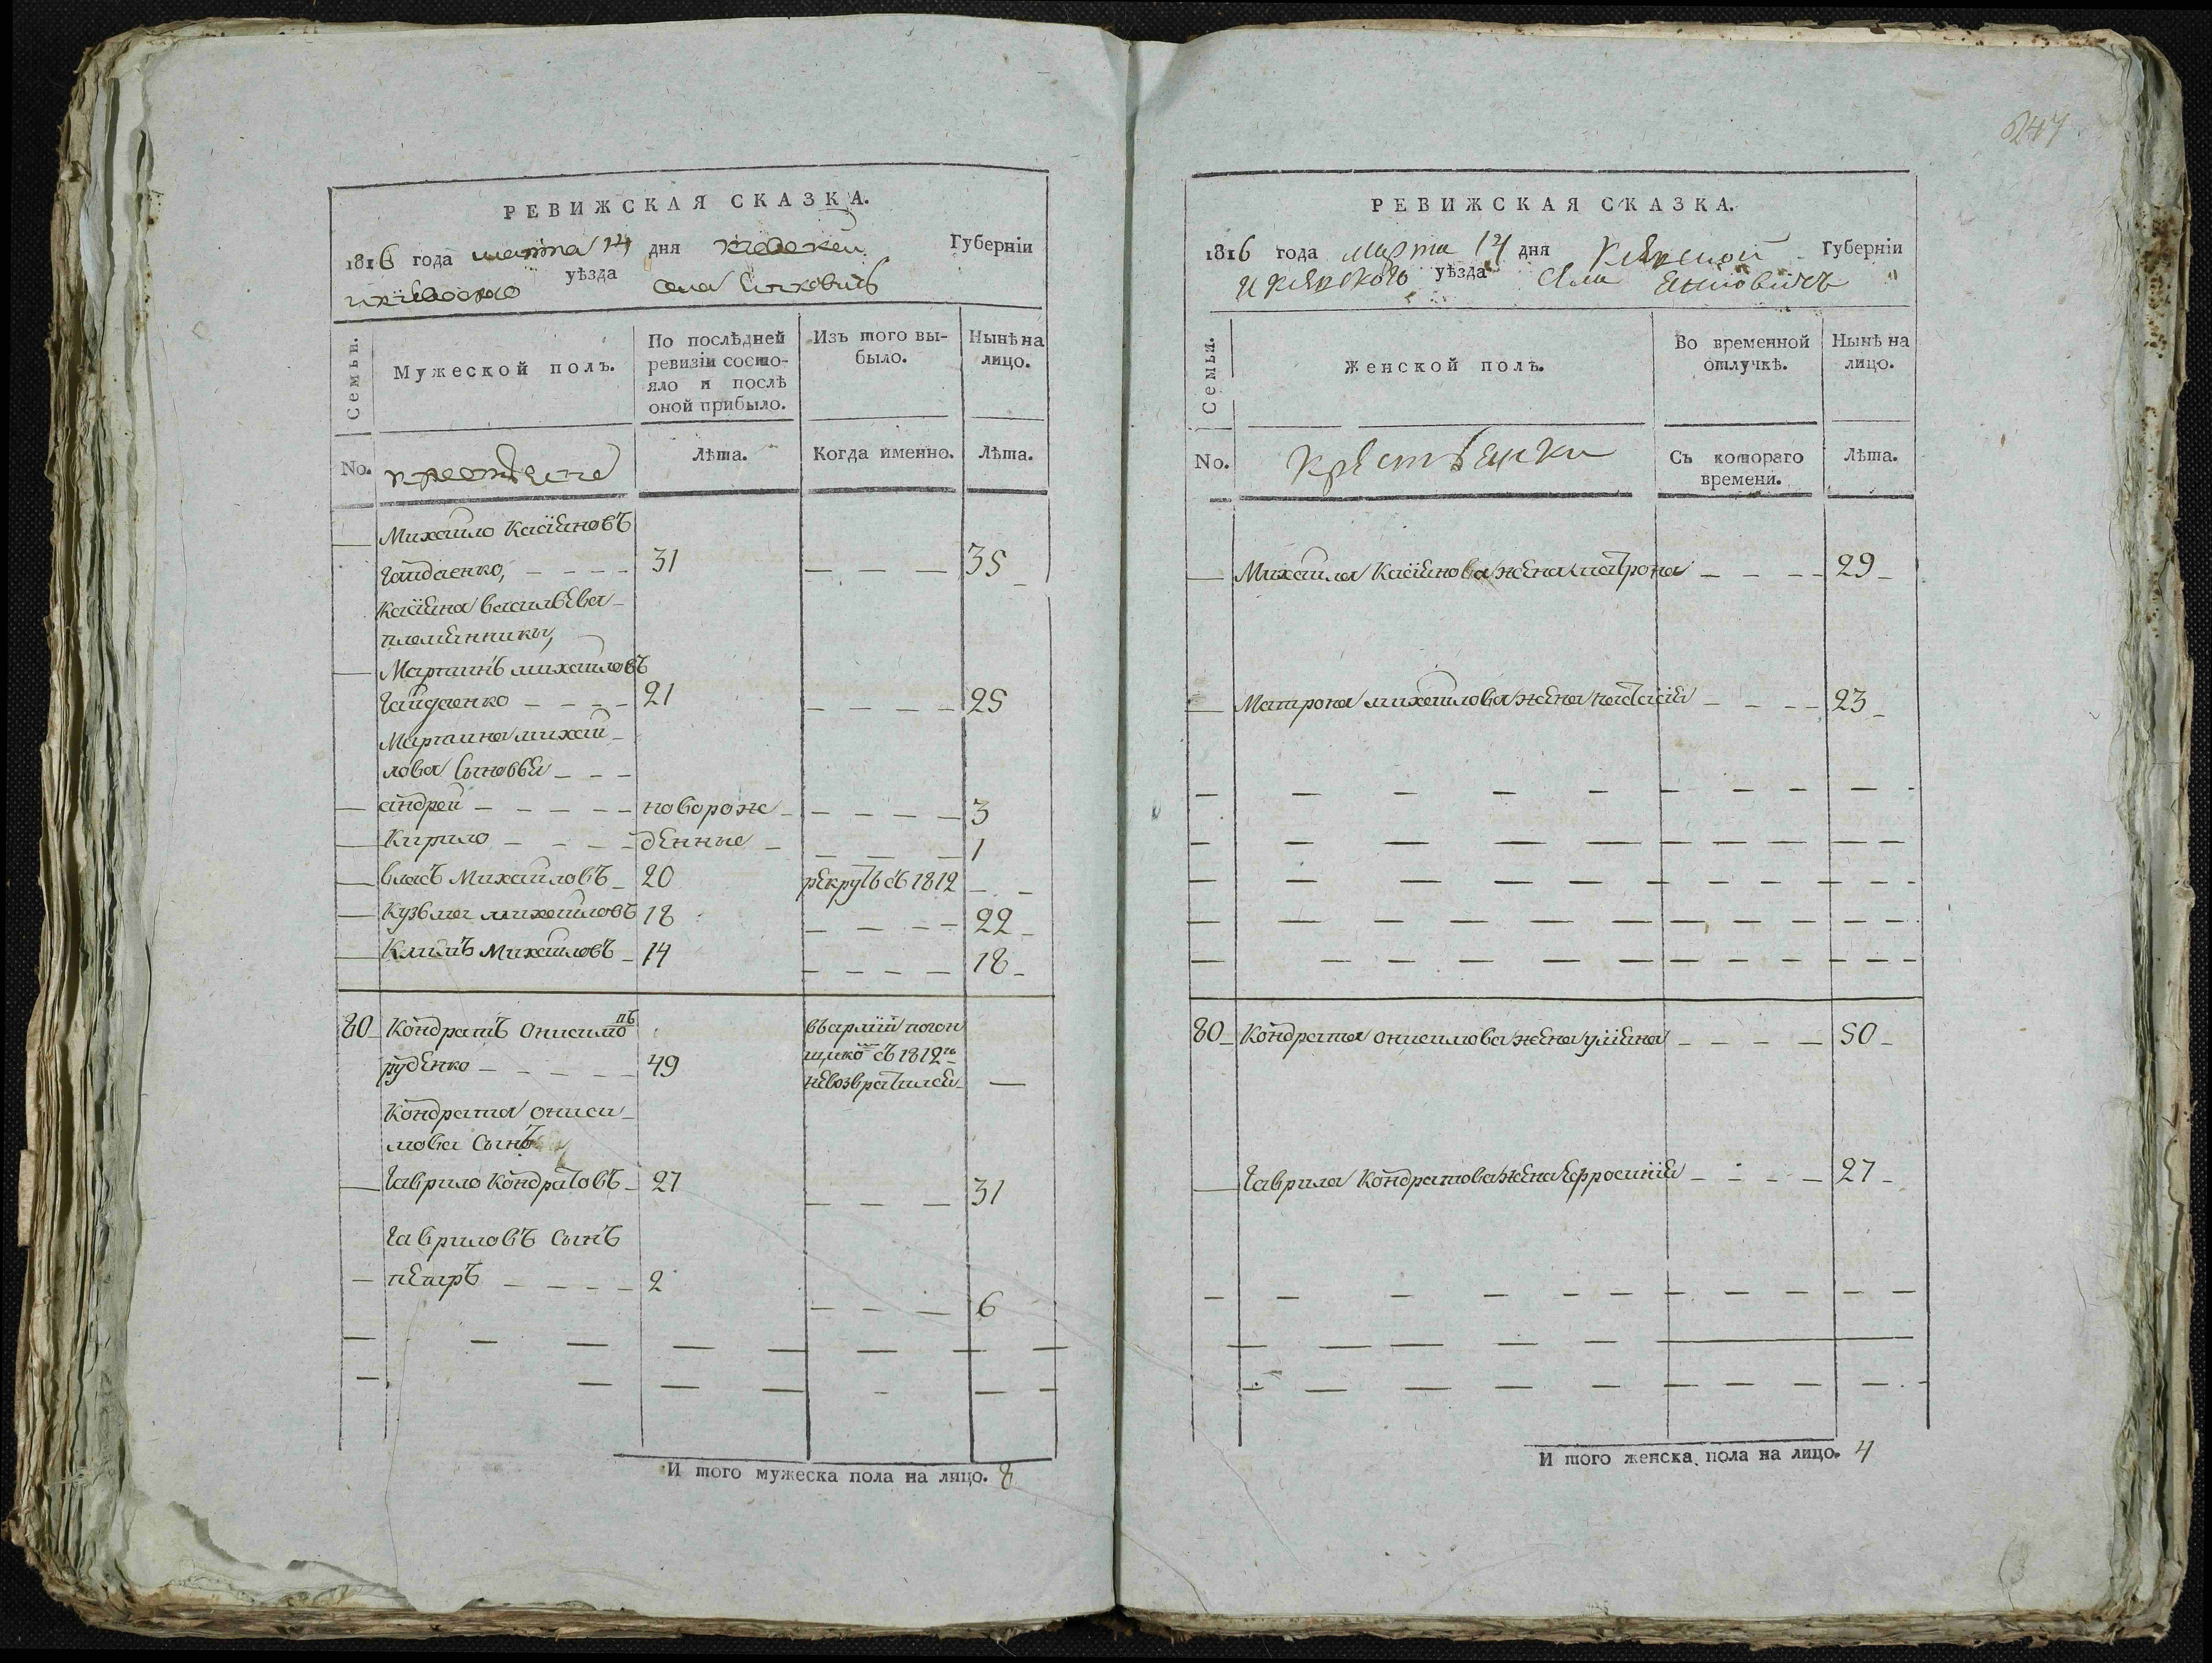 РЕВИЖСКАЯ СКАЗКА.
1816 года марта 14 дня Киевской Губерніи
и Киевского уѣзда Села Янковичъ
Семьи.
Мужеской полъ.
По послѣдней ревизіи состо-
яло и послѣ
оной прибыло.
Изъ того вы-
было.
Нынѣ на
лицо.
No.
крестьяне
Лѣта.
Когда именно.
Лѣта.
Михайло Касїяновъ
Гайдаенко, 31 35
Касїяна васильева
племянники,
Мартинъ михайловъ
Гайдаенко 21 25
Мартина михай
лова Сыновья
андрей новорож 3
Кирило денные 1
власъ Михайловъ 20 рекрутъ съ 1812
Кузьма михайловъ 18 22
Климъ Михайловъ 14 18
80 Кондратъ Онисимо въ армїи погон
руденко 49 щико съ 1812го
невозвратился
Кондрата ониси
мова Сынъ
Гаврило Кондратовъ 27 31
Гавриловъ Сынъ
петръ 2 6
И того мужеска пола на лицо. 8
247
РЕВИЖСКАЯ СКАЗКА.
1816 года марта 14 дня Киевской Губерніи
и Киевского уѣзда Села
Семьи.
Женской полъ.
Во временной
отлучкѣ.
Нынѣ на
лицо.
No.
Крестьянки
Съ котораго
времени.
Лѣта.
Михаила Касїянова жена матрона 29
михайлова жена настасїя 23
80 Кондрата онисимова жена улїяна 50
Гаврила Кондратова жена Ефросинїя 27
И того женска пола на лицо. 4